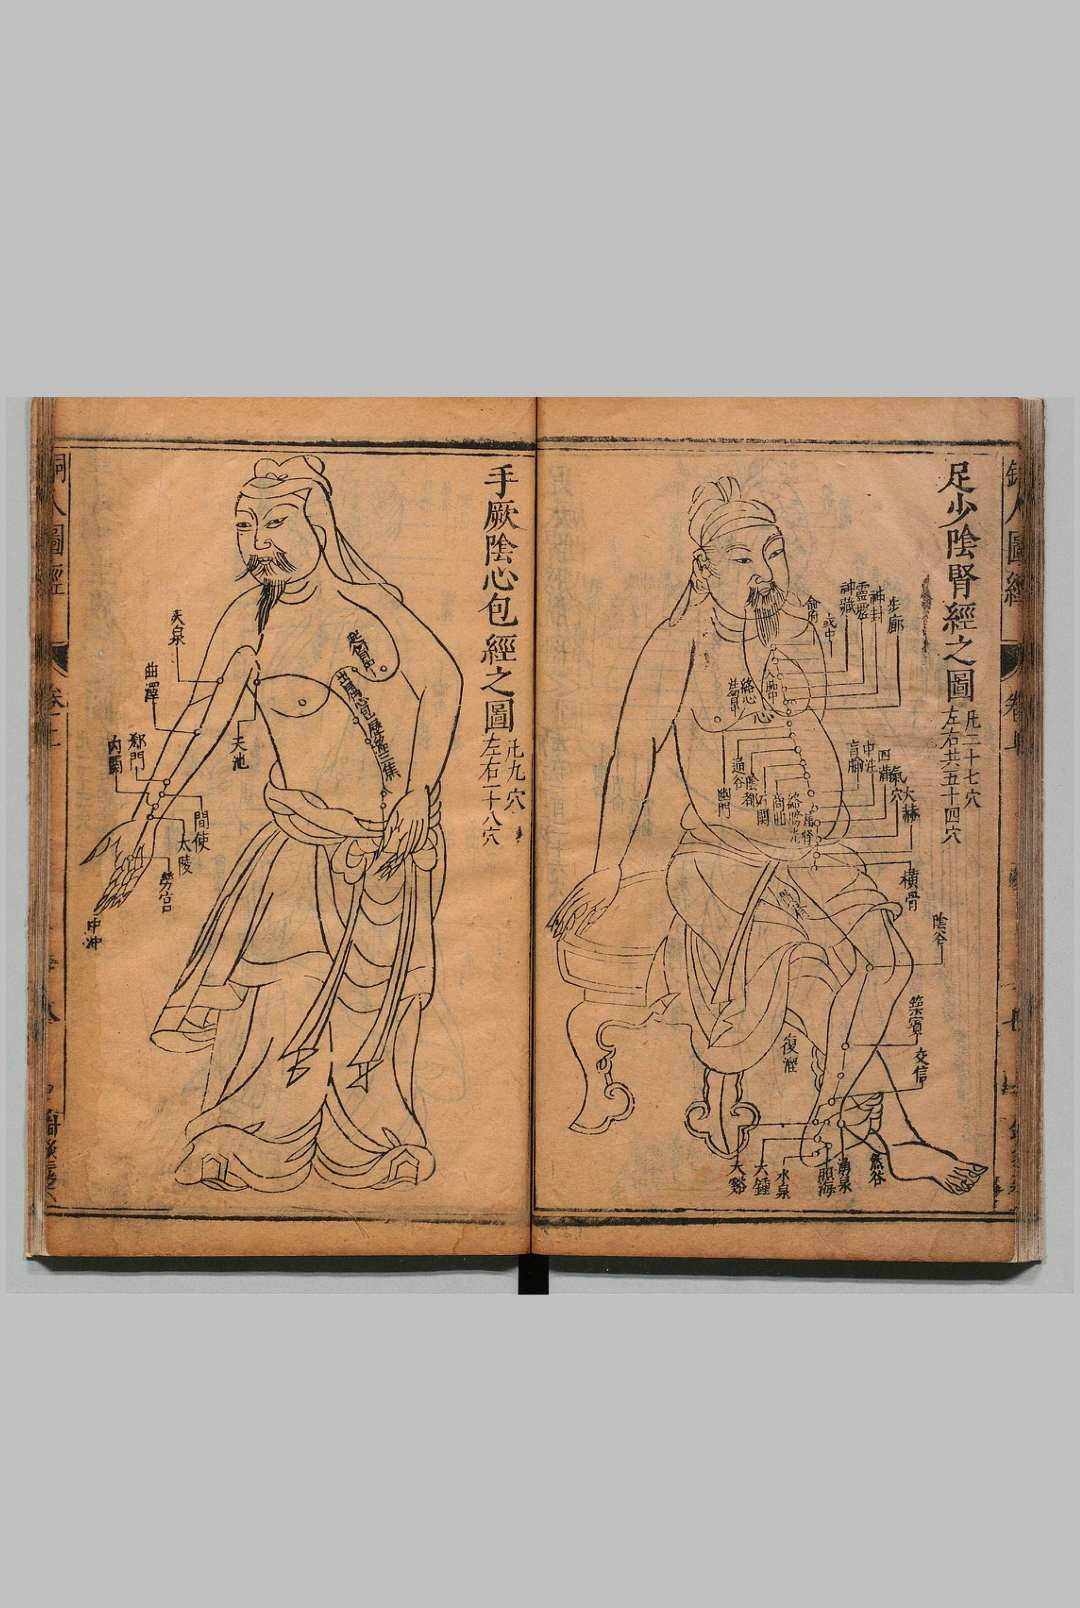 足少陰腎經之圖
凡二十七穴
左右共五十四穴
步廊
神封
靈墟
神藏
或中
俞府
大赫
氣穴
四滿
中注
肓腧
幽門
通谷
陰都
石關
商曲
橫骨
陰谷
築賓
交信
復溜
然谷
湧泉
照海
水泉
大鍾
大谿
手厥陰心包經之圖
凡九穴
左右一十八穴
天泉
曲澤
郄門
內關
天池
間使
大陵
勞宮
中沖
銅人圖經